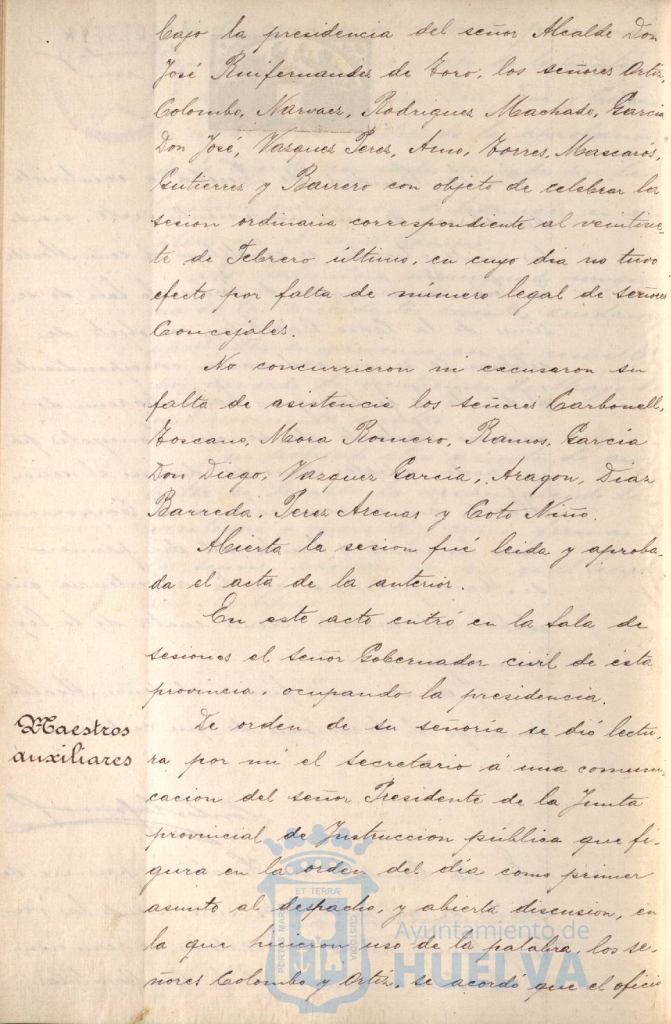 bajo la presidencia del señor Alcalde Don
José Ruifernandez de Toro, los señores Ortiz,
Colombo, Narvaez, Rodriguez Machado, Garcia
Don José, Vazquez Perez, Amo, Torres, Mascarós,
Gutierrez y Barrero con objeto de celebrar la
sesion ordinaria correspondiente al veintisie-
te de Febrero último, en cuyo dia no tuvo
efecto por falta de número legal de señores
Concejales.
No concurrieron ni excusaron su
falta de asistencia los señores Carbonell,
Toscano, Mora Romero, Ramos, Garcia
Don Diego, Vazquez Garcia, Aragon, Diaz
Barreda, Perez Arenas y Coto Niño.
Abierta la sesion fué leida y aproba-
da el acta de la anterior.
En este acto entró en la Sala de
sesiones el señor Gobernador civil de ésta
provincia, ocupando la presidencia.
Maestros
auxiliares
De orden de su señoria se dió lectu-
ra por mi el secretario á una comuni-
cacion del señor Presidente de la Junta
provincial de Instruccion pública que fi-
gura en la orden del dia como primer
asunto al despacho, y abierta discusion, en
la que hicieron uso de la palabra los se-
ñores Colombo y Ortiz, se acordó que el oficio
PORTUS MARIS
ET TERRÆ
CUSTODIA
Ayuntamiento de
HUELVA